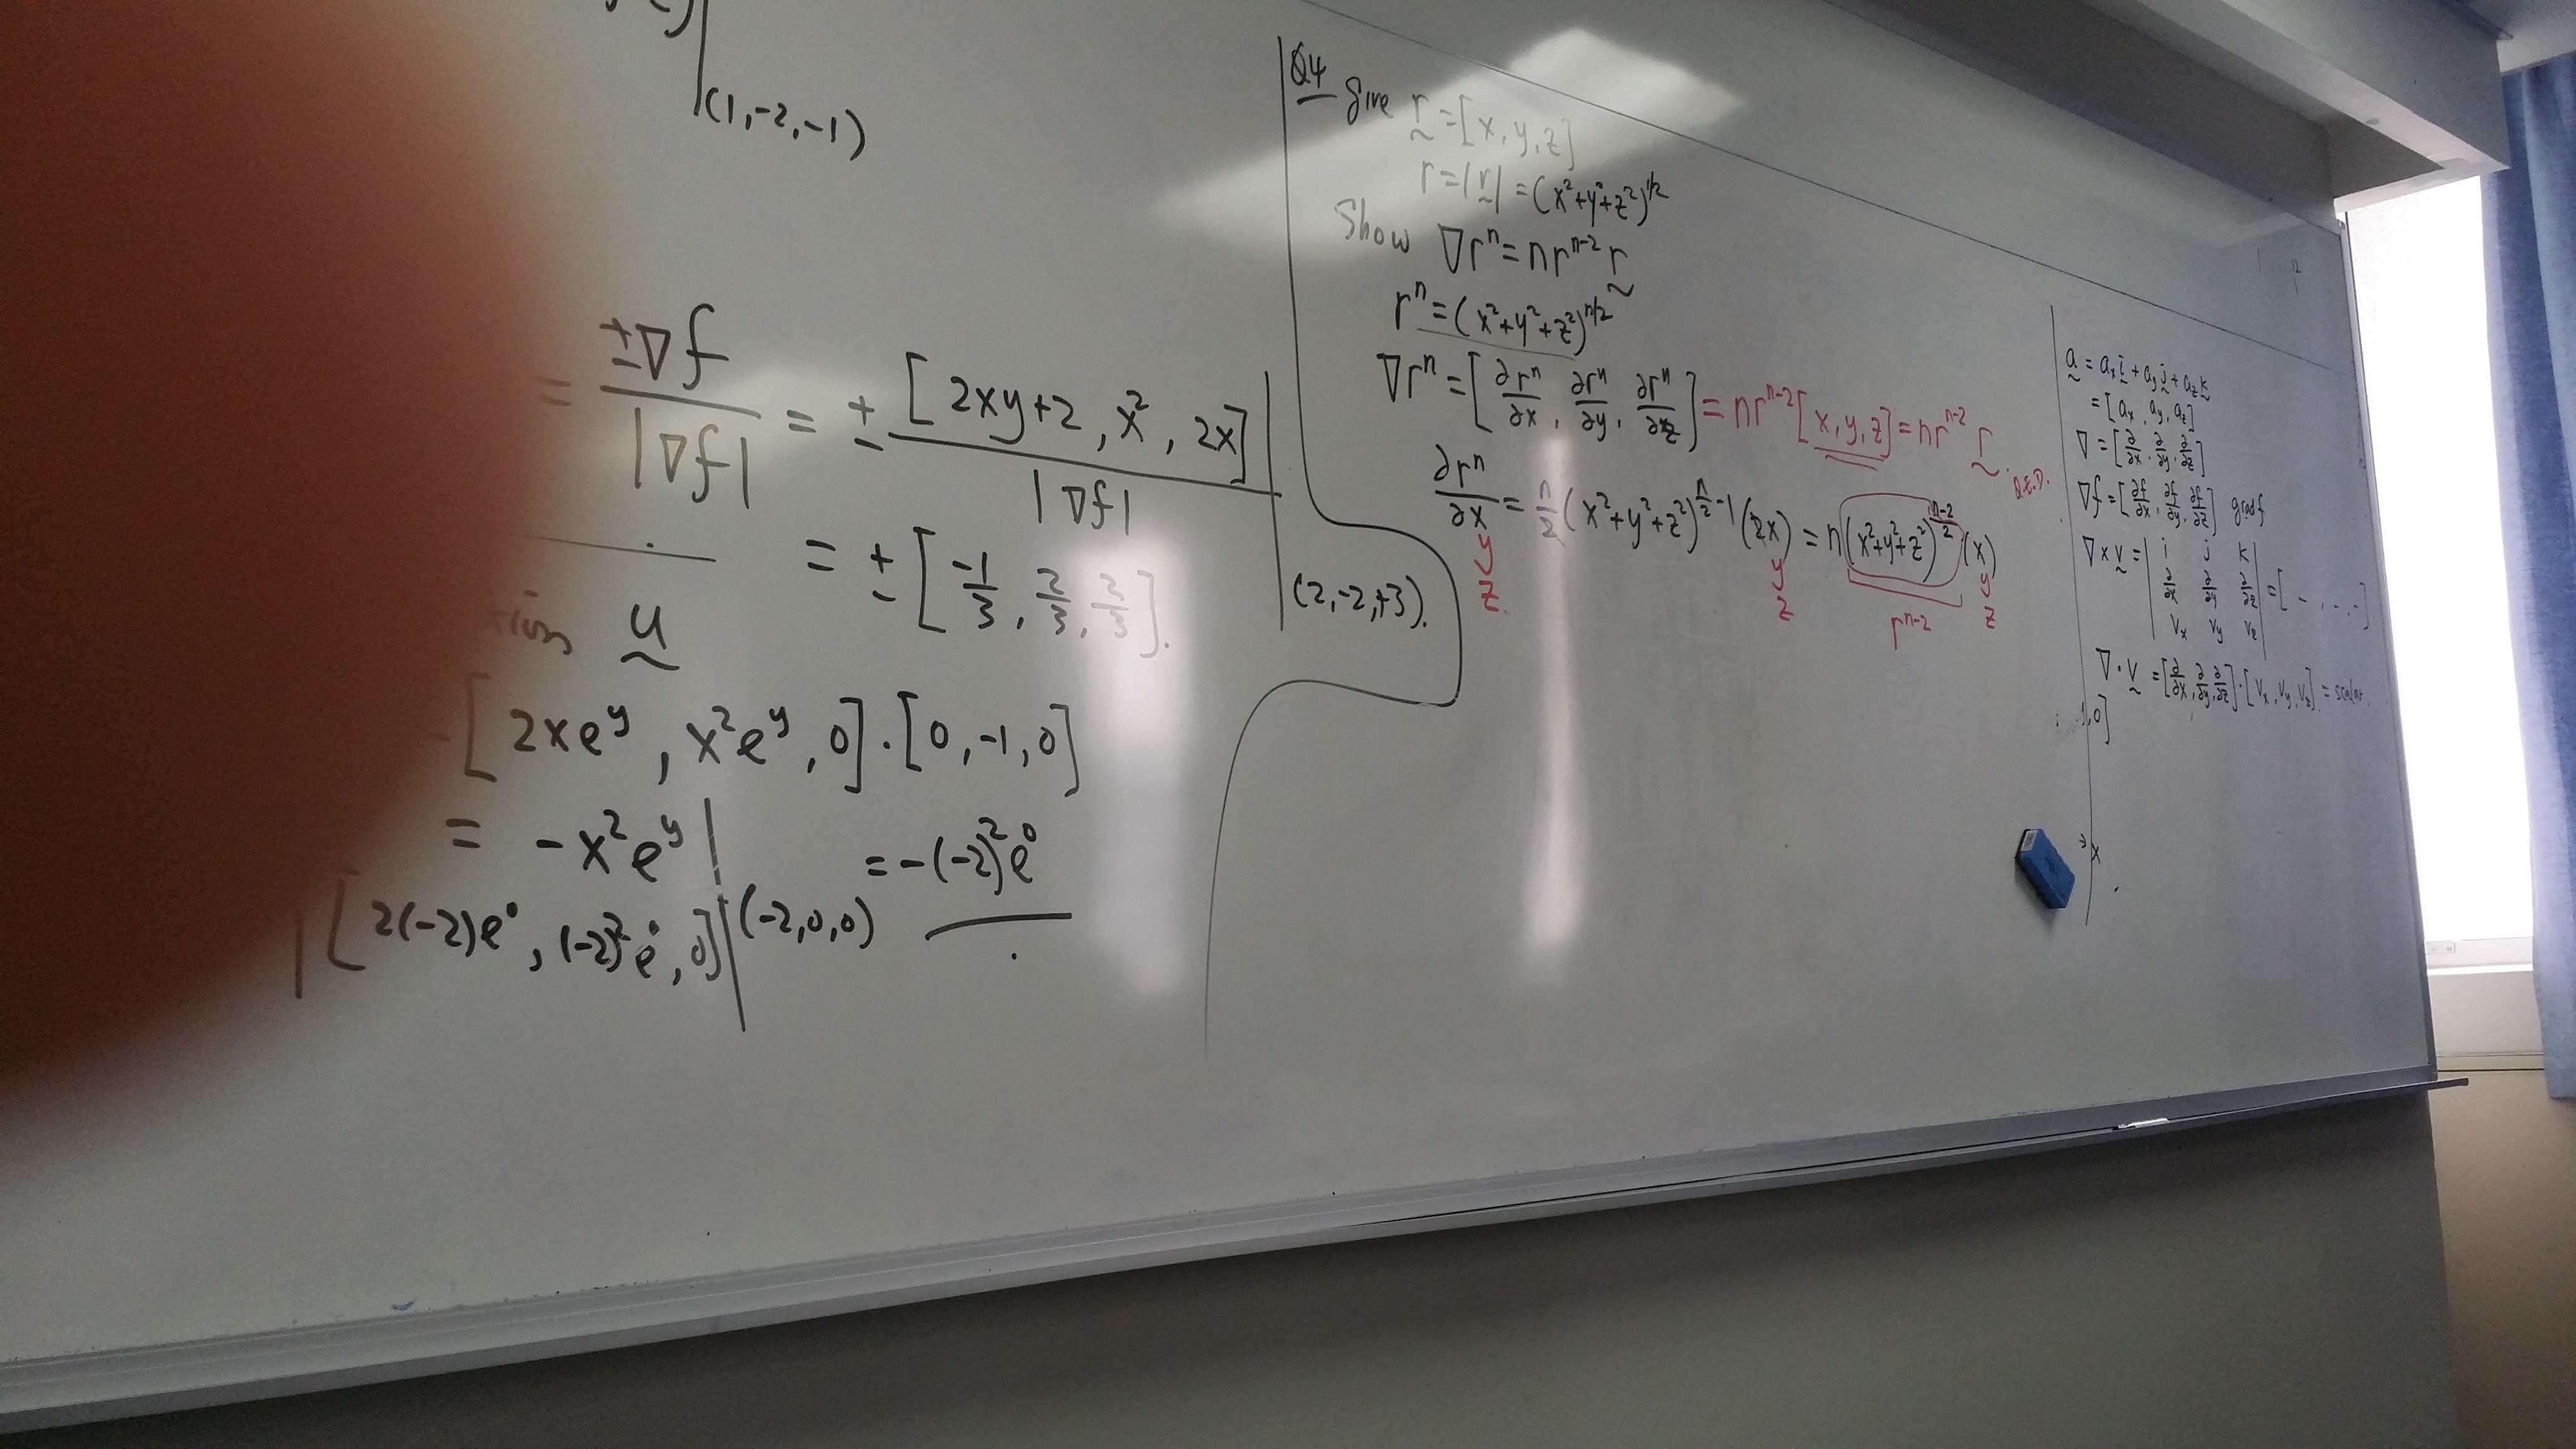 (1,-2,-1)
= ±∇f / |∇f| = ± [2xy+2, x², 2x] / |∇f| |(2,-2,+3).
= ± [-1/3, 2/3, 2/3].
u
[2xeʸ, x²eʸ, 0]·[0,-1,0]
= -x²eʸ| = -(-2)²e⁰
|[2(-2)e⁰, (-2)²e⁰, 0]| (-2,0,0)
Q4 Give r = [x, y, z]
r = |r| = (x²+y²+z²)^1/2
Show ∇rⁿ = nrⁿ⁻² r
rⁿ = (x²+y²+z²)^n/2
∇rⁿ = [∂rⁿ/∂x, ∂rⁿ/∂y, ∂rⁿ/∂z] = nrⁿ⁻²[x,y,z] = nrⁿ⁻² r. Q.E.D.
∂rⁿ/∂x = n/2 (x²+y²+z²)^(n/2 -1) (2x) = n(x²+y²+z²)^(n-2/2) (x)
y y y
z z rⁿ⁻² z
a = aₓi + a_y j + a_z k
= [aₓ, a_y, a_z]
∇ = [∂/∂x, ∂/∂y, ∂/∂z]
∇f = [∂f/∂x, ∂f/∂y, ∂f/∂z] grad f
∇×v = | i j k
∂/∂x ∂/∂y ∂/∂z | = [-, -, -]
Vₓ V_y V_z
∇·v = [∂/∂x, ∂/∂y, ∂/∂z]·[Vₓ, V_y, V_z] = scalar.
,0]
x